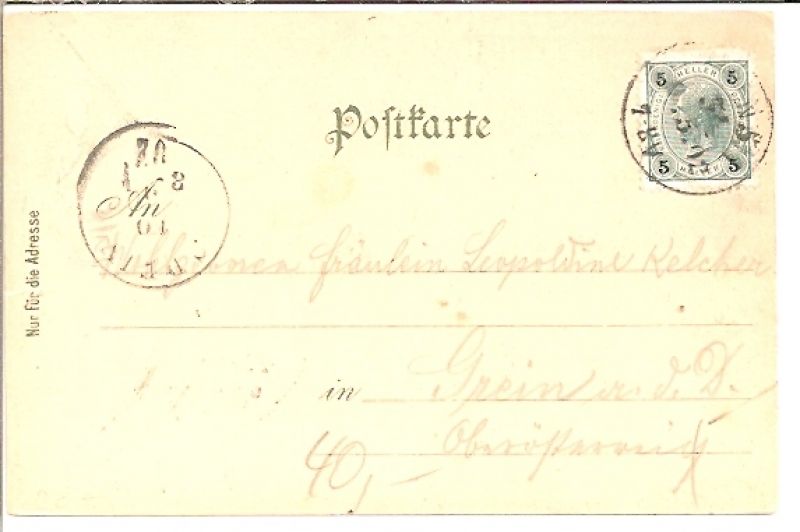 5 HELLER 5
5 HELLER 5
Postkarte
An
Nur für die Adresse
Wohlgeboren Fräulein Leopoldine Kelcher
in Grein a. d. D.
Oberösterreich
40,-